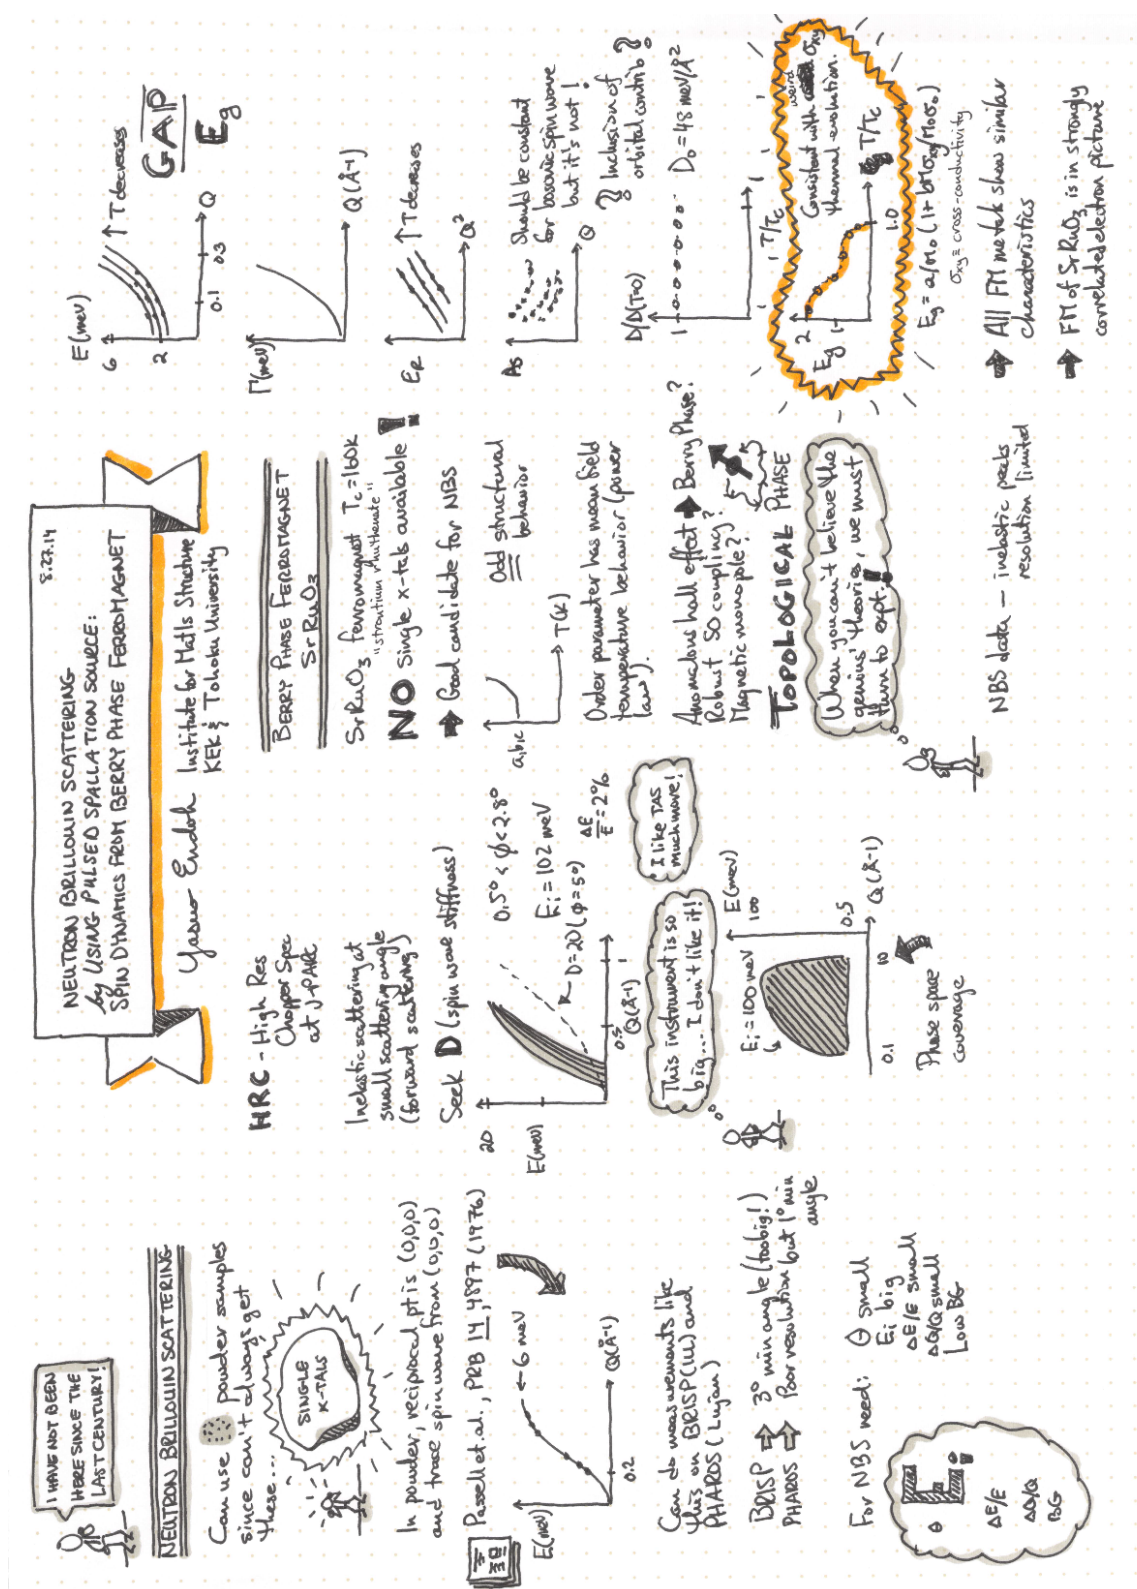 8.27.14
NEUTRON BRILLOUIN SCATTERING
by USING PULSED SPALLATION SOURCE:
SPIN DYNAMICS FROM BERRY PHASE FERROMAGNET
Yasuo Endoh
Institute for Matls Structure
KEK & Tohoku University
I HAVE NOT BEEN
HERE SINCE THE
LAST CENTURY!
NEUTRON BRILLOUIN SCATTERING
Can use powder samples
since can't always get
these...
SINGLE
X-TALS
In powder, reciprocal pt is (0,0,0)
and trace spin wave from (0,0,0)
Passell et al., PRB 14, 4897 (1976)
E(meV)
← 6 meV
0.2
Q(Å-1)
Can do measurements like
this on BRISP (ILL) and
PHAROS (Lujan)
BRISP ⇒ 3° min angle (too big!)
PHAROS ⇒ Poor resolution but 1° min
angle
For NBS need:
θ small
Ei big
ΔE/E small
ΔQ/Q small
Low BG
θ
ΔE/E
ΔQ/Q
BG
HRC - High Res
Chopper Spec
at J-PARC
Inelastic scattering at
small scattering angle
(forward scattering)
Seek D (spin wave stiffness)
20
E(meV)
0.5
1
Q(Å-1)
0.5° < φ < 2.8°
Ei = 102 meV
D=20 (φ=5°)
ΔE/E = 2%
This instrument is so
big.... I don't like it!
I like TAS
much more!
Ei = 100 meV
E(meV)
100
0.5
0.1
10
Q(Å-1)
Phase space
coverage
BERRY PHASE FERROMAGNET
SrRuO3
SrRuO3 ferromagnet Tc = 160K
"strontium rhuthenate"
NO Single x-tals available!
➡ Good candidate for NBS
a,b,c
T(K)
Odd structural
behavior
Order parameter has mean field
temperature behavior (power
law).
Anomalous hall effect ➡ Berry Phase?
Robust SO coupling?
Magnetic monopole?
TOPOLOGICAL PHASE
When you can't believe the
genius' theories, we must
turn to expt!!
NBS data - inelastic peaks
resolution limited
E(meV)
6
2
0.1
0.3
Q
↑ T decreases
GAP
Eg
Γ(meV)
Q(Å-1)
ER
Q²
↑ T decreases
As
Q
Should be constant
for bosonic spin wave
but it's not!
?? Inclusion of
orbital contrib?
D/D(T=0)
1
D0 = 48 meV/Å²
1
T/Tc
2
Eg
1
1.0
T/Tc
Consistent with weird σxy
thermal evolution.
Eg = a/M0 (1 + bMσxy/M0σ0)
σxy ≡ cross-conductivity
➡ All FM metals show similar
characteristics
➡ FM of SrRuO3 is in strongly
correlated electron picture